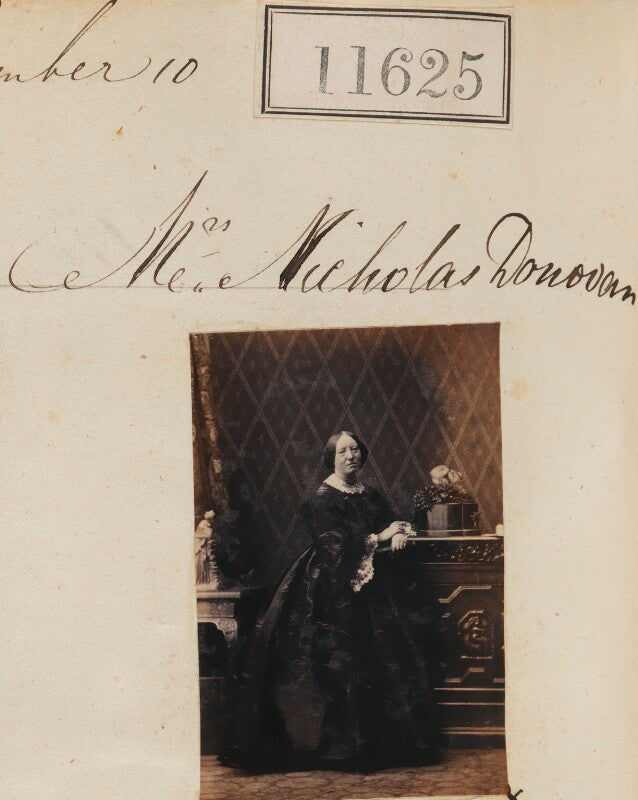 mber 10
11625
Mrs Nicholas Donovan